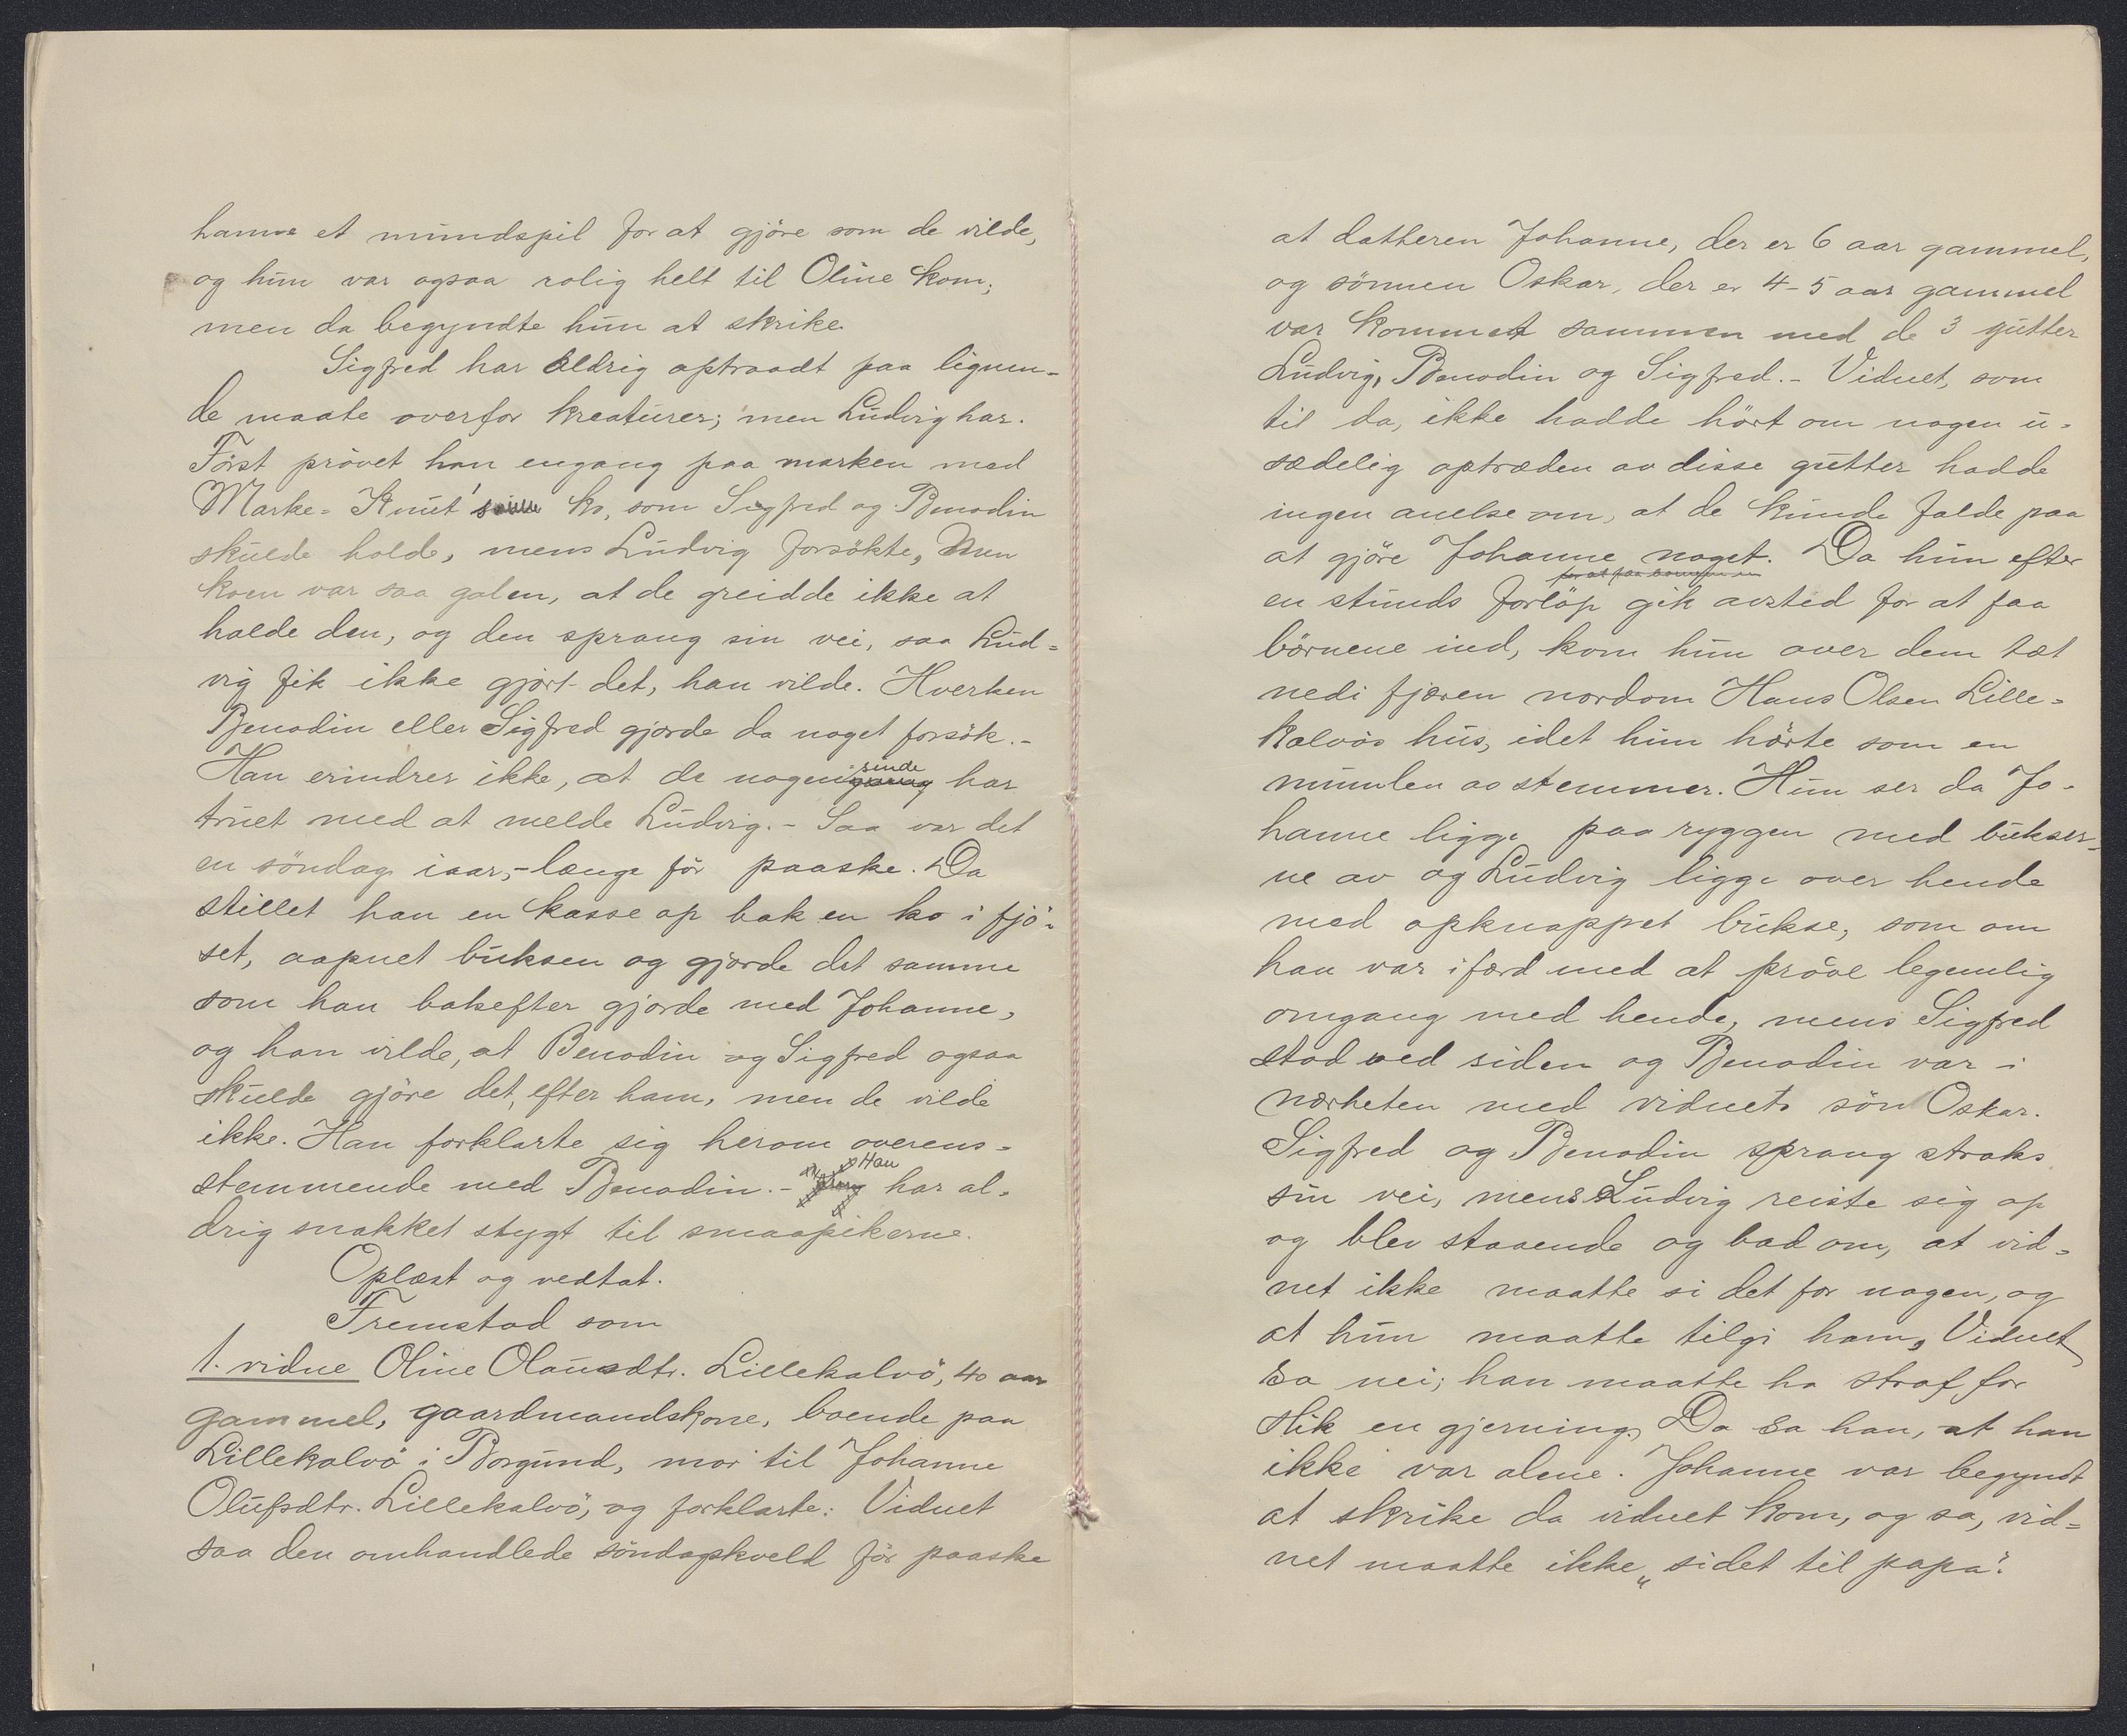 hanne et mundspil for at gjöre som de vilde,
og hun var ogsaa rolig helt til Oline kom;
men da begyndte hun at skrike.
Sigfred har aldrig optraadt paa lignen-
de maate overfor kreaturer; men Ludvig har.
Först prövet han engang paa marken med
Marke-Knut' ko, som Sigfred og Benodin
skulde holde, mens Ludvig forsökte, Men
koen var saa galen, at de greidde ikke at
halde den, og den sprang sin vei, saa Lud-
vig fik ikke gjort det, han vilde. Hverken
Benodin eller Sigfred gjorde da noget forsök.-
Han erindrer ikke, at de nogensinde har
truet med at melde Ludvig.- Saa var det
en söndag iaar,- længe för paaske. Da
stillet han en kasse op bak en ko i fjö-
set, aapnet buksen og gjorde det samme
som han bakefter gjorde med Johanne,
og han vilde, at Benodin og Sigfred ogsaa
skulde gjöre det, efter ham, men de vilde
ikke. Han forklarte sig herom overens-
stemmende med Benodin.- Han har al-
drig snakket stygt til smaapikerne.
Oplæst og vedtat.
Fremstod som
1. vidne Oline Olausdtr. Lillekalvö, 40 aar
gammel, gaardmandskone, boende paa
Lillekalvö i Borgund, mor til Johanne
Olufsdtr. Lillekalvö, og forklarte: Vidnet
saa den omhandlede söndagskveld för paaske
at datteren Johanne, der er 6 aar gammel,
og sönnen Oskar, der er 4-5 aar gammel
var kommet sammen med de 3 gutter
Ludvig, Benodin og Sigfred.- Vidnet, som
til da, ikke hadde hört om nogen u-
sædelig optræden av disse gutter hadde
ingen anelse om, at de kunde falde paa
at gjöre Johanne noget. Da hun efter
en stunds forlöp gik avsted for at faa
börnene ind, kom hun over dem tæt
nedi fjæren nordom Hans Olsen Lille-
kalvös hus, idet hun hörte som en
mumlen av stemmer. Hun ser da Jo-
hanne ligge paa ryggen med bukser-
ne av og Ludvig ligge over hende
med opknappet bukse, som om
han var ifærd med at pröve legemlig
omgang med hende, mens Sigfred
stod ved siden og Benodin var i
nærheten med vidnets sön Oskar.
Sigfred og Benodin sprang straks
sin vei, mens Ludvig reiste sig op
og blev staaende og bad om, at vid-
net ikke maatte si det for nogen, og
at hun maatte tilgi ham, Vidnet
sa nei; han maatte ha straf for
slik en gjerning. Da sa han, at han
ikke var alene. Johanne var begyndt
at skrike da vidnet kom, og sa, vid-
net maatte ikke „sidet til papa".